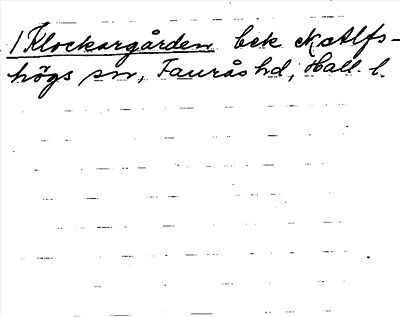 1 Klockargården bek N Alfs-
högs sn, Faurås hd, Hall. l.